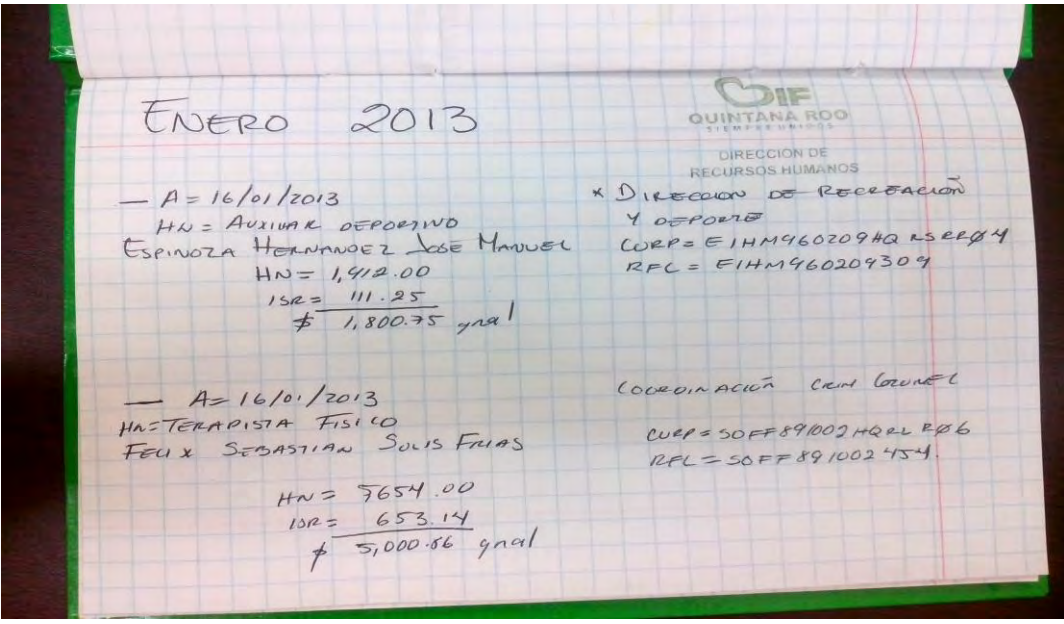 ENERO 2013
DIF
QUINTANA ROO
SIEMPRE UNIDOS
DIRECCIÓN DE
RECURSOS HUMANOS
— A= 16/01/2013
HN = AUXILIAR DEPORTIVO
ESPINOZA HERNANDEZ JOSE MANUEL
HN = 1,912.00
ISR = 111.25
$ 1,800.75 qnal
* DIRECCION DE RECREACION
Y DEPORTE
CURP= EIHM960209HQRSRRØ4
RFC = EIHM960209309
— A= 16/01/2013
HN= TERAPISTA FISICO
FELIX SEBASTIAN SOLIS FRIAS
HN = 5654.00
ISR= 653.14
$ 5,000.86 qnal
COORDINACIÓN CRIM COZUMEL
CURP= SOFF891002HQRLRØ6
RFC = SOFF891002454.